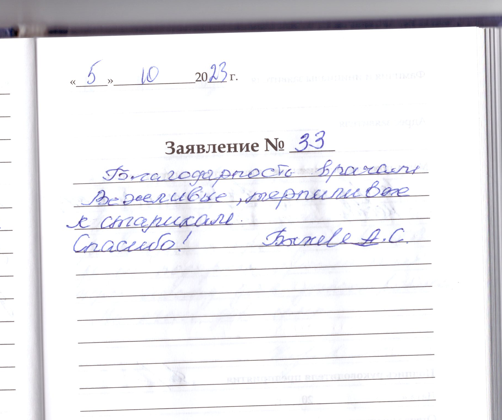 «5» 10 2023 г.
Заявление № 33
Благодарность врачам
Вежливые, терпиливые
к старикам.
Спасибо! А.С.